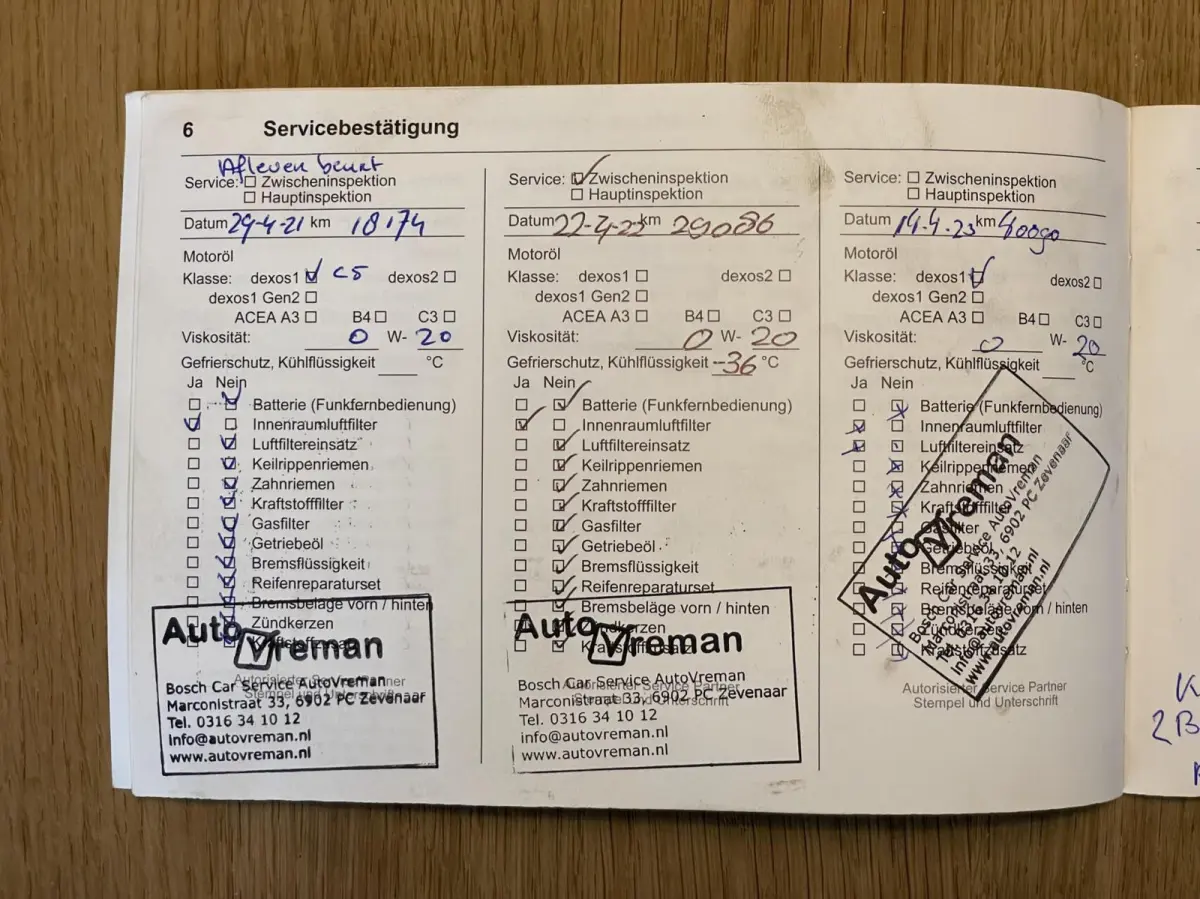 6 Servicebestätigung
Afleven beurt
Service: ☐ Zwischeninspektion
☐ Hauptinspektion
Datum 29-4-21 km 18174
Motoröl
Klasse: dexos1 ☑ C5 dexos2 ☐
dexos1 Gen2 ☐
ACEA A3 ☐ B4 ☐ C3 ☐
Viskosität: 0 W- 20
Gefrierschutz, Kühlflüssigkeit ____ °C
Ja Nein
☐ ☑ Batterie (Funkfernbedienung)
☑ ☐ Innenraumluftfilter
☐ ☑ Luftfiltereinsatz
☐ ☑ Keilrippenriemen
☐ ☑ Zahnriemen
☐ ☑ Kraftstofffilter
☐ ☑ Gasfilter
☐ ☑ Getriebeöl
☐ ☑ Bremsflüssigkeit
☐ ☑ Reifenreparaturset
☐ ☑ Bremsbeläge vorn / hinten
☐ ☑ Zündkerzen
Kraftstoffzusatz
Autorisierter Service Partner
Stempel und Unterschrift
AutoVreman
Bosch Car Service AutoVreman
Marconistraat 33, 6902 PC Zevenaar
Tel. 0316 34 10 12
info@autovreman.nl
www.autovreman.nl
Service: ☑ Zwischeninspektion
☐ Hauptinspektion
Datum 22-4-22 km 29086
Motoröl
Klasse: dexos1 ☐ dexos2 ☐
dexos1 Gen2 ☐
ACEA A3 ☐ B4 ☐ C3 ☐
Viskosität: 0 W- 20
Gefrierschutz, Kühlflüssigkeit -36 °C
Ja Nein
☐ ☑ Batterie (Funkfernbedienung)
☑ ☐ Innenraumluftfilter
☐ ☑ Luftfiltereinsatz
☐ ☑ Keilrippenriemen
☐ ☑ Zahnriemen
☐ ☑ Kraftstofffilter
☐ ☑ Gasfilter
☐ ☑ Getriebeöl
☐ ☑ Bremsflüssigkeit
☐ ☑ Reifenreparaturset
☐ ☑ Bremsbeläge vorn / hinten
☐ ☑ Zündkerzen
☐ ☑ Kraftstoffzusatz
Autorisierter Service Partner
Stempel und Unterschrift
AutoVreman
Bosch Car Service AutoVreman
Marconistraat 33, 6902 PC Zevenaar
Tel. 0316 34 10 12
info@autovreman.nl
www.autovreman.nl
Service: ☐ Zwischeninspektion
☐ Hauptinspektion
Datum 14-4-23 km 40090
Motoröl
Klasse: dexos1 ☑ dexos2 ☐
dexos1 Gen2 ☐
ACEA A3 ☐ B4 ☐ C3 ☐
Viskosität: 0 W- 20
Gefrierschutz, Kühlflüssigkeit ____ °C
Ja Nein
☐ ☒ Batterie (Funkfernbedienung)
☒ ☐ Innenraumluftfilter
☒ ☐ Luftfiltereinsatz
☐ ☒ Keilrippenriemen
☐ ☒ Zahnriemen
☐ ☒ Kraftstofffilter
☐ ☒ Gasfilter
☐ ☒ Getriebeöl
☐ ☒ Bremsflüssigkeit
☐ ☒ Reifenreparaturset
☐ ☒ Bremsbeläge vorn / hinten
☐ ☒ Zündkerzen
☐ ☒ Kraftstoffzusatz
Autorisierter Service Partner
Stempel und Unterschrift
AutoVreman
Bosch Car Service AutoVreman
Marconistraat 33, 6902 PC Zevenaar
Tel. 0316 34 10 12
info@autovreman.nl
www.autovreman.nl